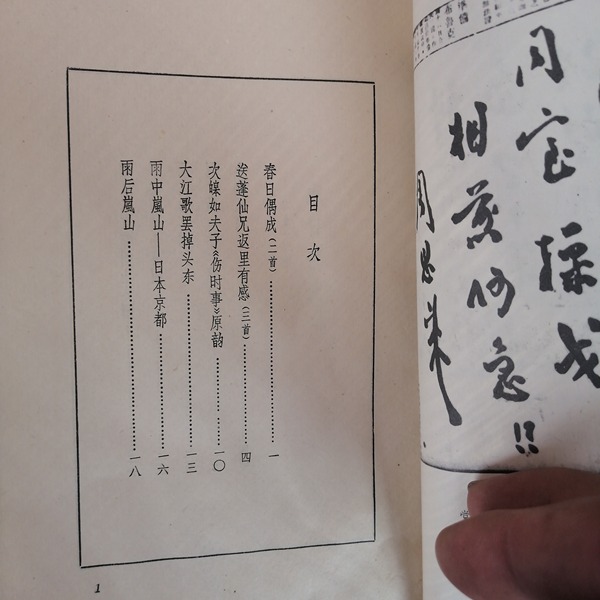 同室操戈
相煎何急!!
周恩来
目次
春日偶成(二首)……………一
送蓬仙兄返里有感(三首)……………四
次皞如夫子《伤时事》原韵……………一〇
大江歌罢掉头东……………一三
雨中嵐山——日本京都……………一六
雨后嵐山……………一八
1